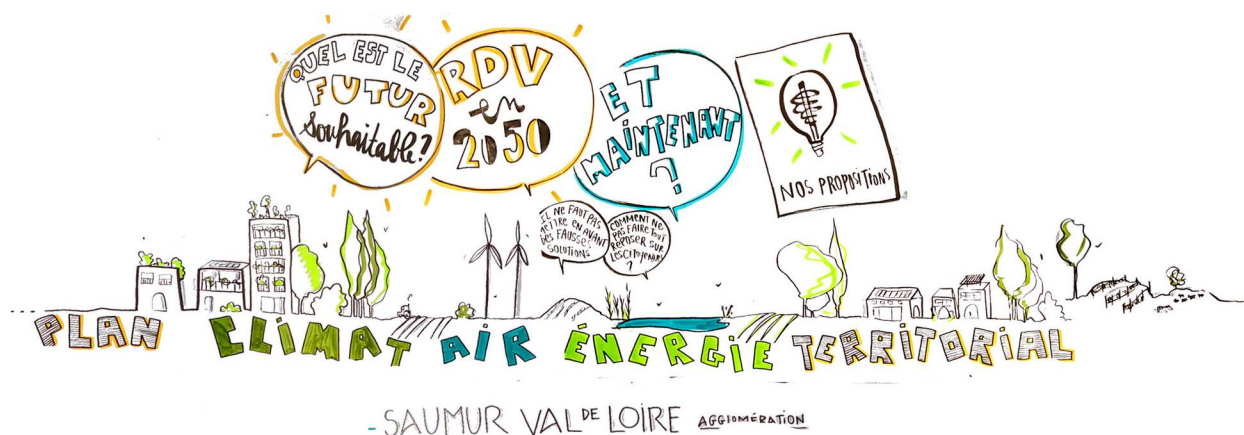 QUEL EST LE
FUTUR
souhaitable?
RDV
en
2050
ET
MAINTENANT
?
NOS PROPOSITIONS
IL NE FAUT PAS
METTRE EN AVANT
DES FAUSSES
SOLUTIONS
COMMENT NE
PAS FAIRE TOUT
REPOSER SUR
LES CITOYENS
?
PLAN CLIMAT AIR ÉNERGIE TERRITORIAL
- SAUMUR VAL DE LOIRE AGGLOMÉRATION